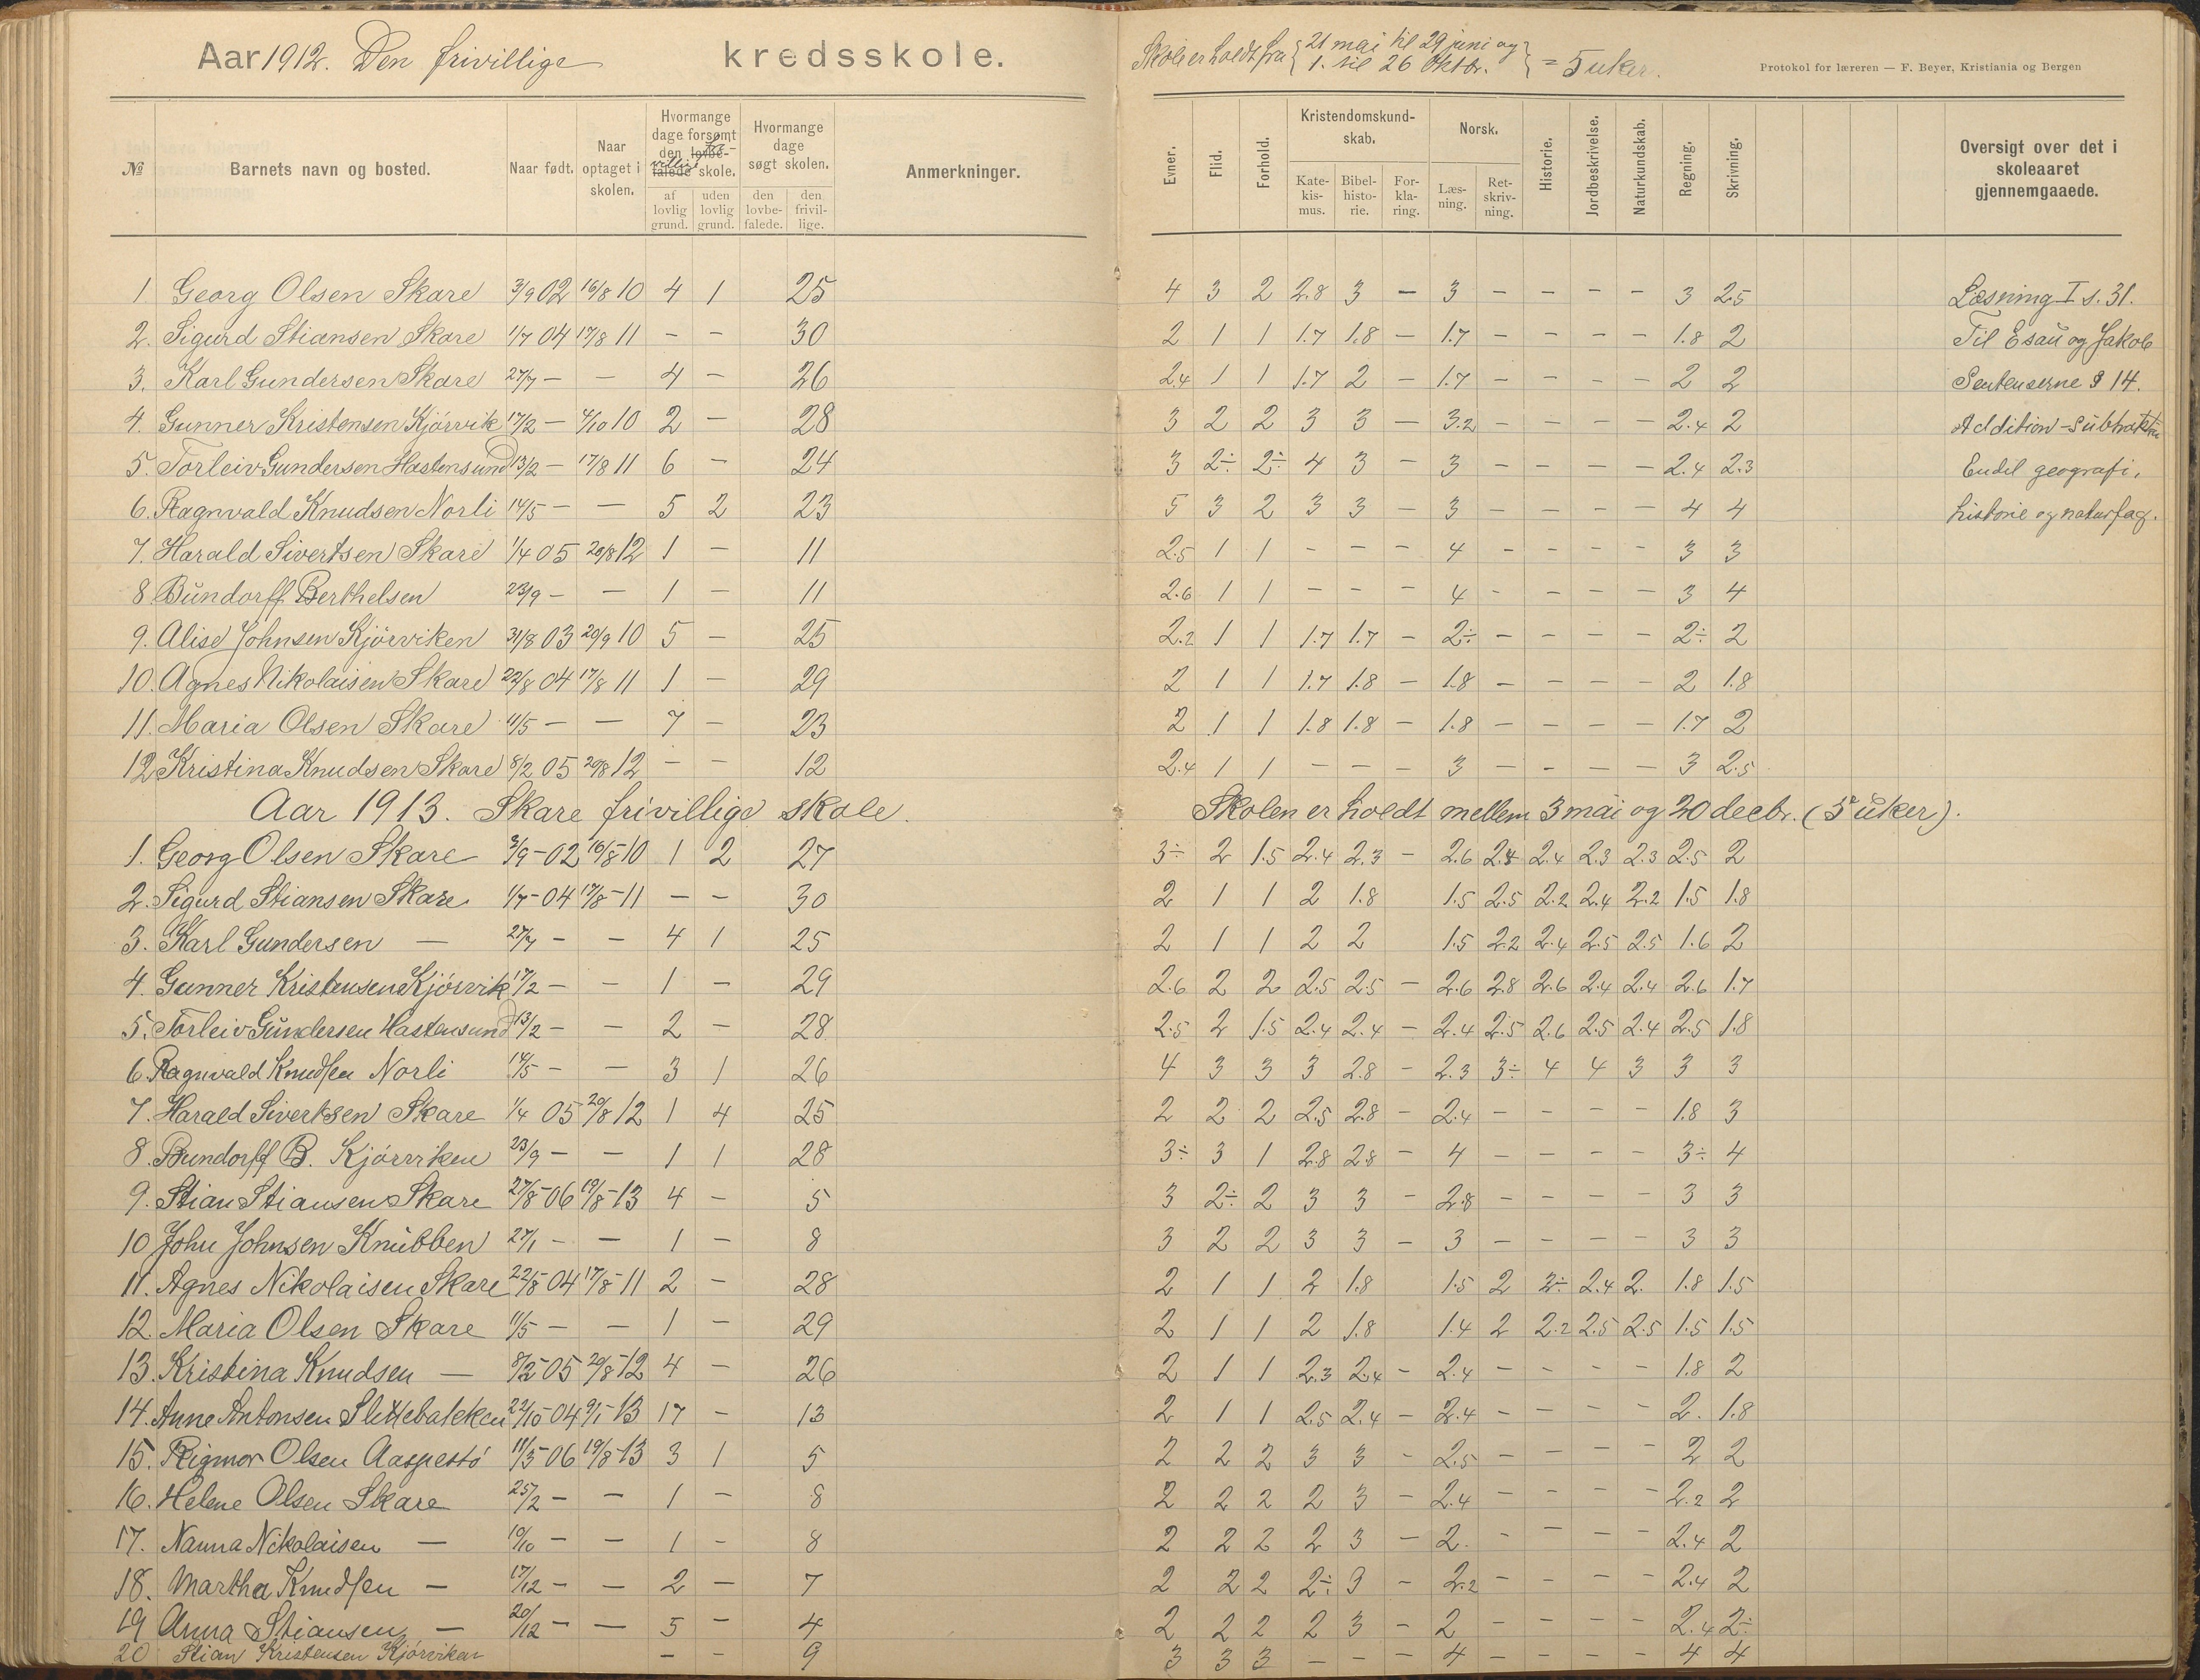 Aar 1912. Den frivillige kredsskole.
Skolen er holdt fra { 21 mai til 29 juni og 1. til 26 oktbr. } = 5 uker.
Protokol for læreren — F. Beyer, Kristiania og Bergen
№ | Barnets navn og bosted. | Naar født. | Naar optaget i skolen. | Hvormange dage forsømt den lovbe- fri- villige falede skole. | Hvormange dage søgt skolen. | Anmerkninger.
af lovlig grund. | uden lovlig grund. | den lovbe- falede. | den frivil- lige.
Evner. | Flid. | Forhold. | Kristendomskund- skab. | Norsk. | Historie. | Jordbeskrivelse. | Naturkundskab. | Regning. | Skrivning. | Oversigt over det i skoleaaret gjennemgaaede.
Kate- kis- mus. | Bibel- histo- rie. | For- kla- ring. | Læs- ning. | Ret- skriv- ning.
1 Georg Olsen Skare 3/9 02 16/8 10 4 1 25 4 3 2 2.8 3 - 3 - - - - 3 2.5 Læsning I s. 31.
2. Sigurd Stiansen Skare 1/7 04 17/8 11 - - 30 2 1 1 1.7 1.8 - 1.7 - - - - 1.8 2 Til Esau og Jakob
3. Karl Gundersen Skare 27/7 - - 4 - 26 2.4 1 1 1.7 2 - 1.7 - - - - 2 2 Sentenserne § 14.
4. Gunner Kristensen Kjørvik 17/2 - 4/10 10 2 - 28 3 2 2 3 3 - 3.2 - - - - 2.4 2 Addition - Subtraktion
5. Torleiv Gundersen Hastensund 13/2 - 17/8 11 6 - 24 3 2÷ 2÷ 4 3 - 3 - - - - 2.4 2.3 Endel geografi,
6. Ragnvald Knudsen Norli 14/5 - - 5 2 23 5 3 2 3 3 - 3 - - - - 4 4 historie og naturfag.
7. Harald Sivertsen Skare 1/4 05 20/8 12 1 - 11 2.5 1 1 - - - 4 - - - - 3 3
8 Bundorff Berthelsen 23/9 - - 1 - 11 2.6 1 1 - - - 4 - - - - 3 4
9. Alise Johnsen Kjørviken 31/8 03 20/9 10 5 - 25 2.2 1 1 1.7 1.7 - 2÷ - - - - 2÷ 2
10. Agnes Nikolaisen Skare 22/8 04 17/8 11 1 - 29 2 1 1 1.7 1.8 - 1.8 - - - - 2 1.8
11. Maria Olsen Skare 11/5 - - 7 - 23 2 1 1 1.8 1.8 - 1.8 - - - - 1.7 2
12 Kristina Knudsen Skare 8/2 05 20/8 12 - - 12 2.4 1 1 - - - 3 - - - - 3 2.5
Aar 1913. Skare frivillige skole. Skolen er holdt mellem 3 mai og 20 decbr. (5 uker).
1. Georg Olsen Skare 3/9-02 16/8 10 1 2 27 3÷ 2 1.5 2.4 2.3 - 2.6 2.4 2.4 2.3 2.3 2.5 2
2. Sigurd Stiansen Skare 1/7-04 17/8-11 - - 30 2 1 1 2 1.8 1.5 2.5 2.2 2.4 2.2 1.5 1.8
3. Karl Gundersen - 27/7 - - 4 1 25 2 1 1 2 2 1.5 2.2 2.4 2.5 2.5 1.6 2
4. Gunner Kristensen Kjørvik 17/2 - - 1 - 29 2.6 2 2 2.5 2.5 - 2.6 2.8 2.6 2.4 2.4 2.6 1.7
5. Torleiv Gundersen Hastensund 13/2 - - 2 - 28 2.5 2 1.5 2.4 2.4 - 2.4 2.5 2.6 2.5 2.4 2.5 1.8
6. Ragnvald Knudsen Norli 14/5 - - 3 1 26 4 3 3 3 2.8 - 2.3 3÷ 4 4 3 3 3
7. Harald Sivertsen Skare 1/4 05 20/8 12 1 4 25 2 2 2 2.5 2.8 - 2.4 - - - - 1.8 3
8. Bundorff B. Kjørviken 23/9 - - 1 1 28 3÷ 3 1 2.8 2.8 - 4 - - - - 3÷ 4
9. Stian Stiansen Skare 27/8-06 19/8-13 4 - 5 3 2÷ 2 3 3 - 2.8 - - - - 3 3
10 John Johnsen Knubben 27/1 - - 1 - 8 3 2 2 3 3 - 3 - - - - 3 3
11. Agnes Nikolaisen Skare 22/8-04 17/8-11 2 - 28 2 1 1 2 1.8 1.5 2 2÷ 2.4 2. 1.8 1.5
12. Maria Olsen Skare 11/5 - - 1 - 29 2 1 1 2 1.8 1.4 2 2.2 2.5 2.5 1.5 1.5
13. Kristina Knudsen - 8/2-05 20/8-12 4 - 26 2 1 1 2.3 2.4 - 2.4 - - - - 1.8 2
14. Anne Antonsen Slettebakken 22/10-04 9/1-13 17 - 13 2 1 1 2.5 2.4 - 2.4 - - - - 2. 1.8
15. Rigmor Olsen Aaspestø 11/3-06 19/8-13 3 1 5 2 2 2 3 3 - 2.5 - - - - 2 2
16. Helene Olsen Skare 25/2 - - 1 - 8 2 2 2 2 3 - 2.4 - - - - 2.2 2
17. Nanna Nikolaisen - 10/10 - - 1 - 8 2 2 2 2 3 - 2. - - - - 2.4 2
18. Martha Knudsen - 17/12 - - 2 - 7 2 2 2 2÷ 3 - 2.2 - - - - 2.4 2
19 Anna Stiansen - 20/12 - - 5 - 4 2 2 2 2 3 - 2 - - - - 2.4 2÷
20 Stian Kristensen Kjørviken - - 9 3 3 3 - - - 4 - - - - 4 4